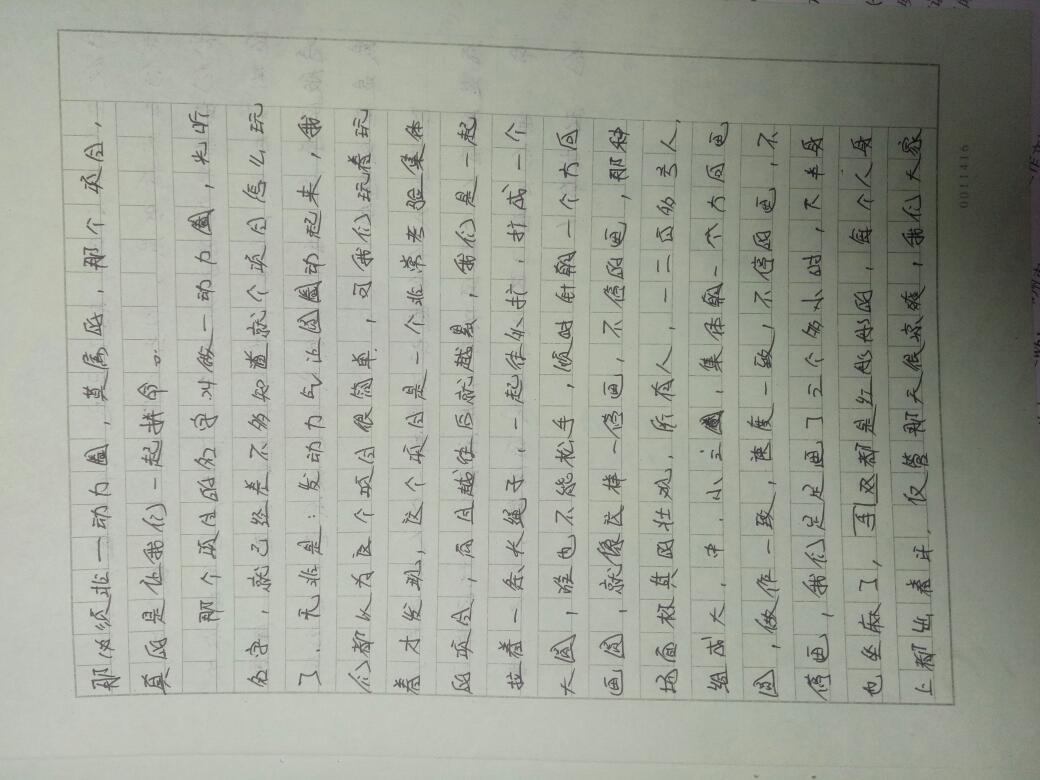 那必须非一动力圈，莫属的，那个项目，
真的是在我们一起拼命。
那个项目的名字叫做一动力圈，光听
名字，就已经差不多知道就个项目怎么玩
了，无非是：发动力气让圆圈动起来，我
们都以为这个项目很简单，可我们玩着玩
着才发现，这个项目是一个非常考验集体
的项目，而且越往后就越累，我们是一起
拉着一条大绳子，一起往外扩，扩成一个
大圆，谁也不能松手，顺时针朝一个方向
画圆，就像这样一停画，不停的画，那种
场面极其的壮观，所有人，一二百多号人，
给成大，中，小三圈，集体朝一个方向画
圆，做作一致，速度一致，不停的画，不
停画，我们足足画了三个多小时，下半身
也坐麻了，手双都是红彤彤的，每个人身
上都出着汗，仅管那天很凉爽，我们大家
0011416